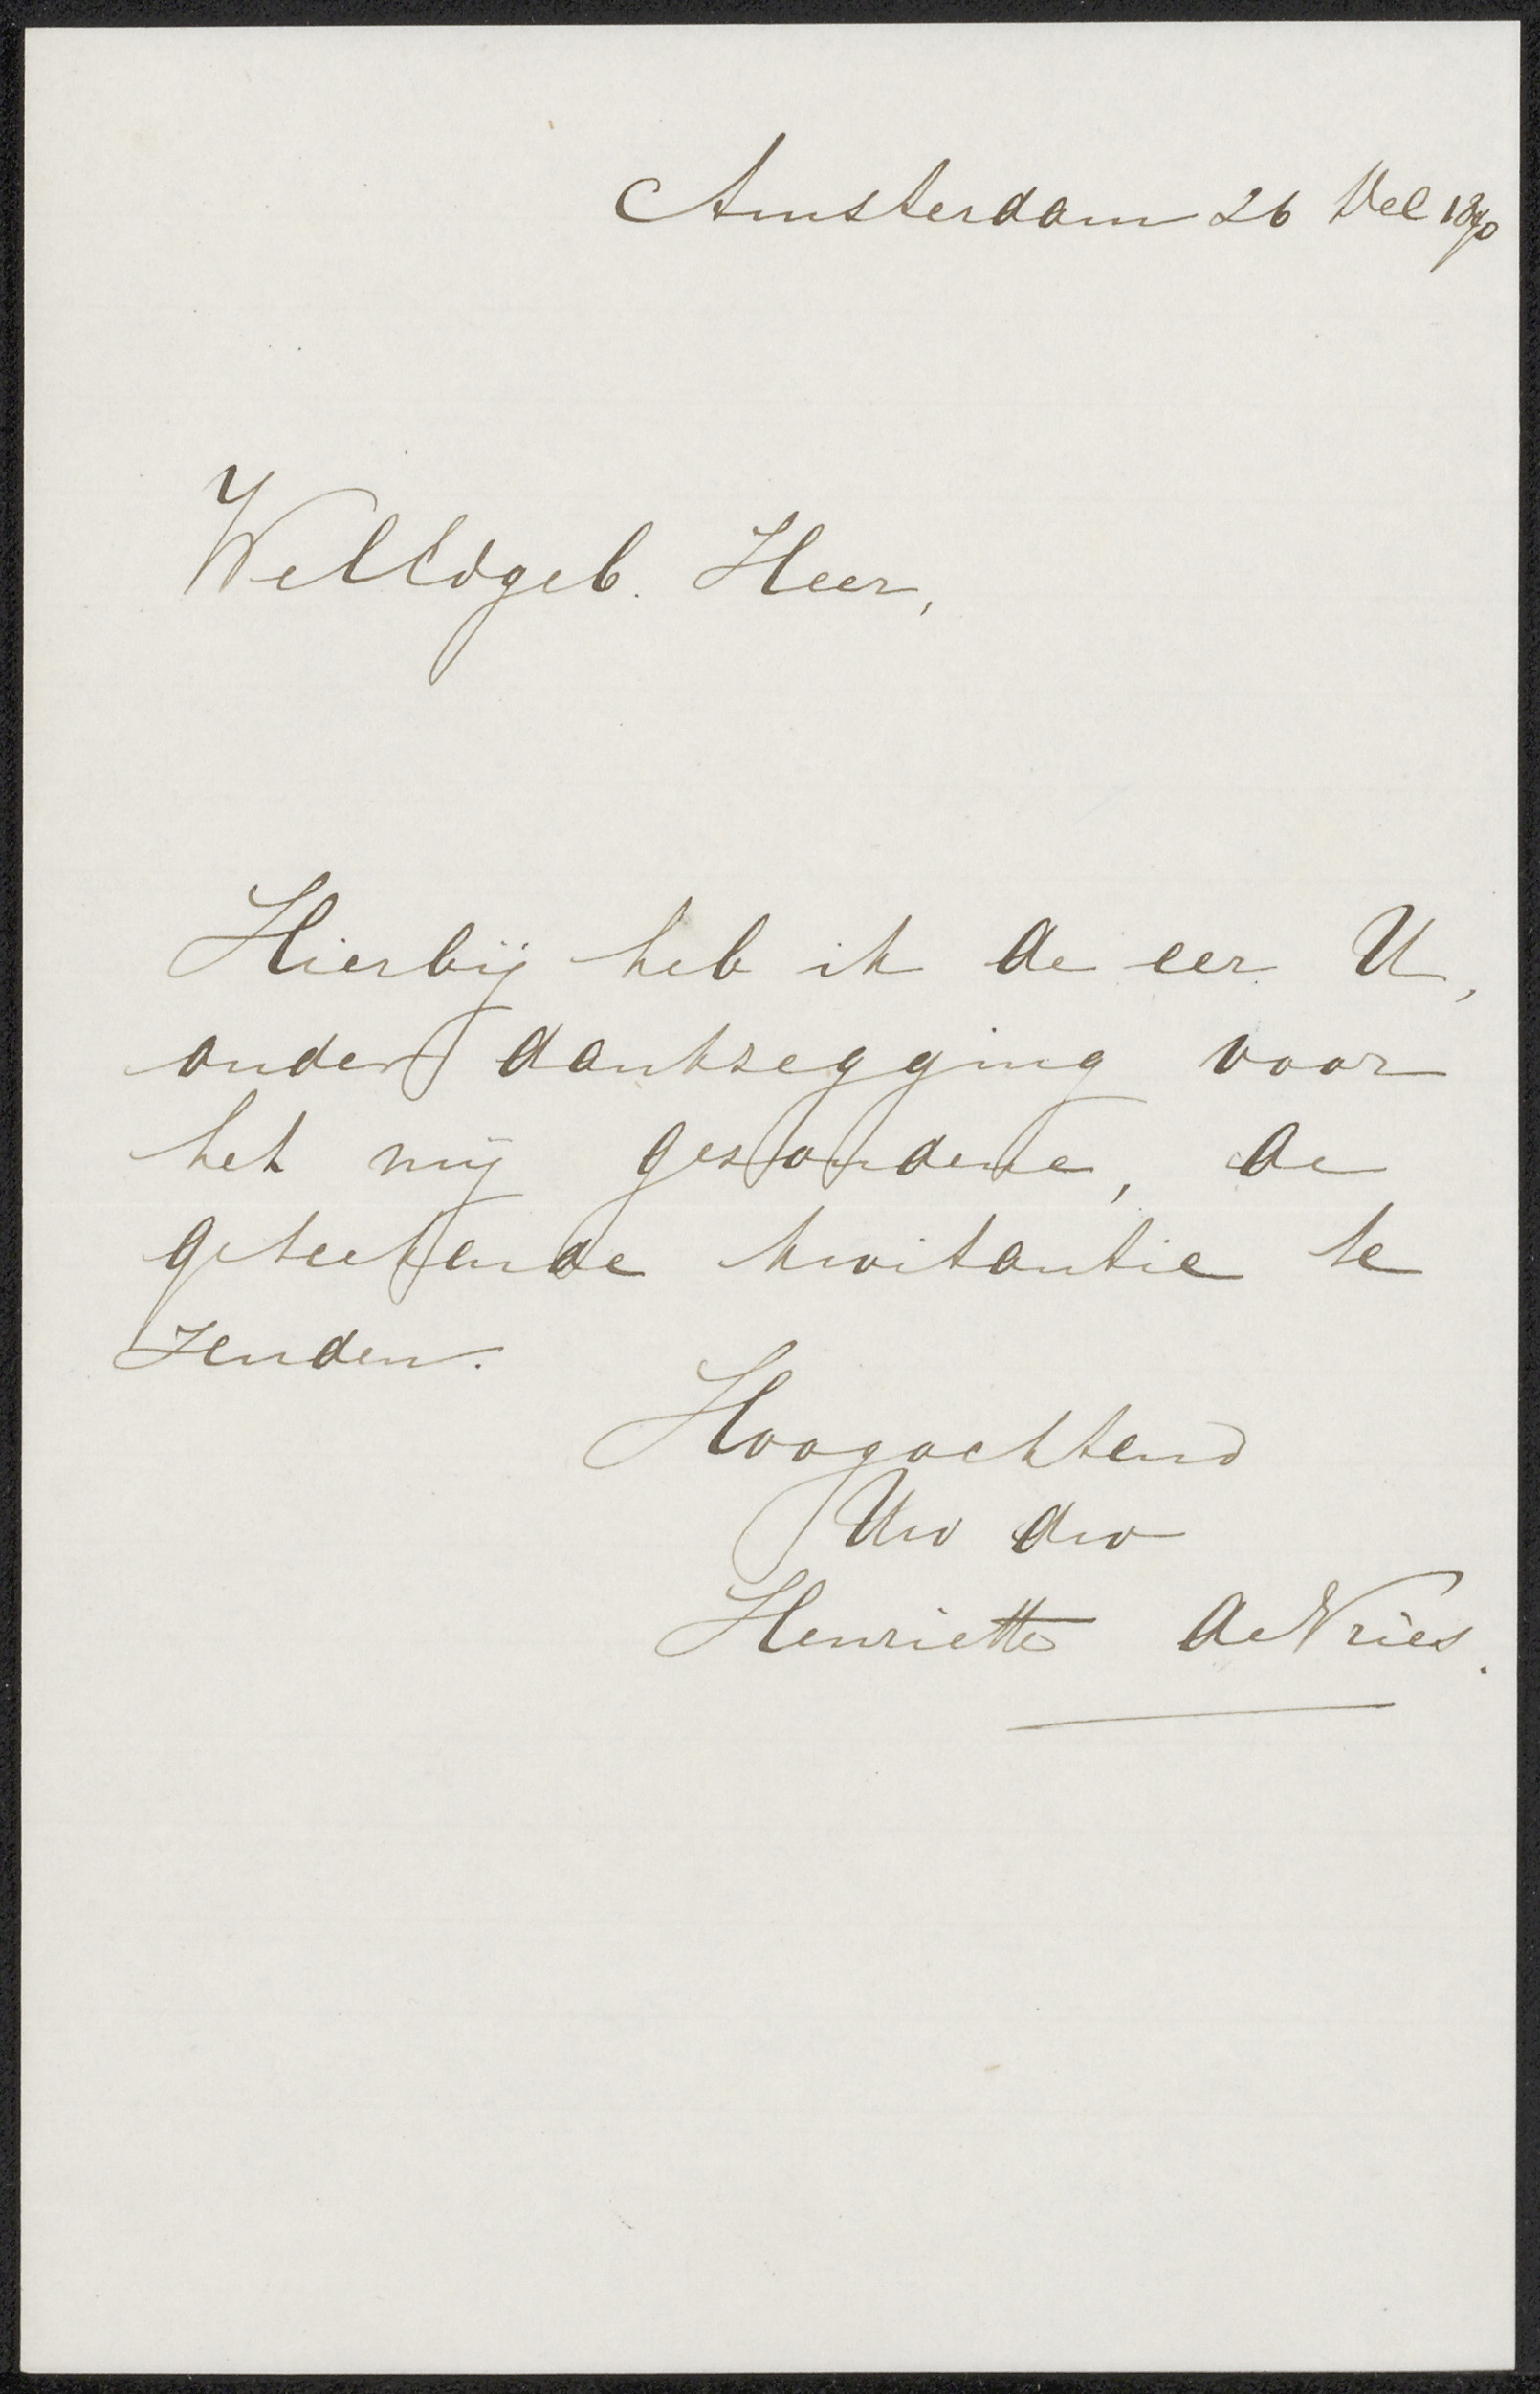 Amsterdam 26 Dec 1890
WelEdgeb. Heer,
Hierbij heb ik de eer U,
onder dankzegging voor
het mij gezondene, de
geteekende kwitantie te
zenden.
Hoogachtend
Uw dw
Henriette de Vries.